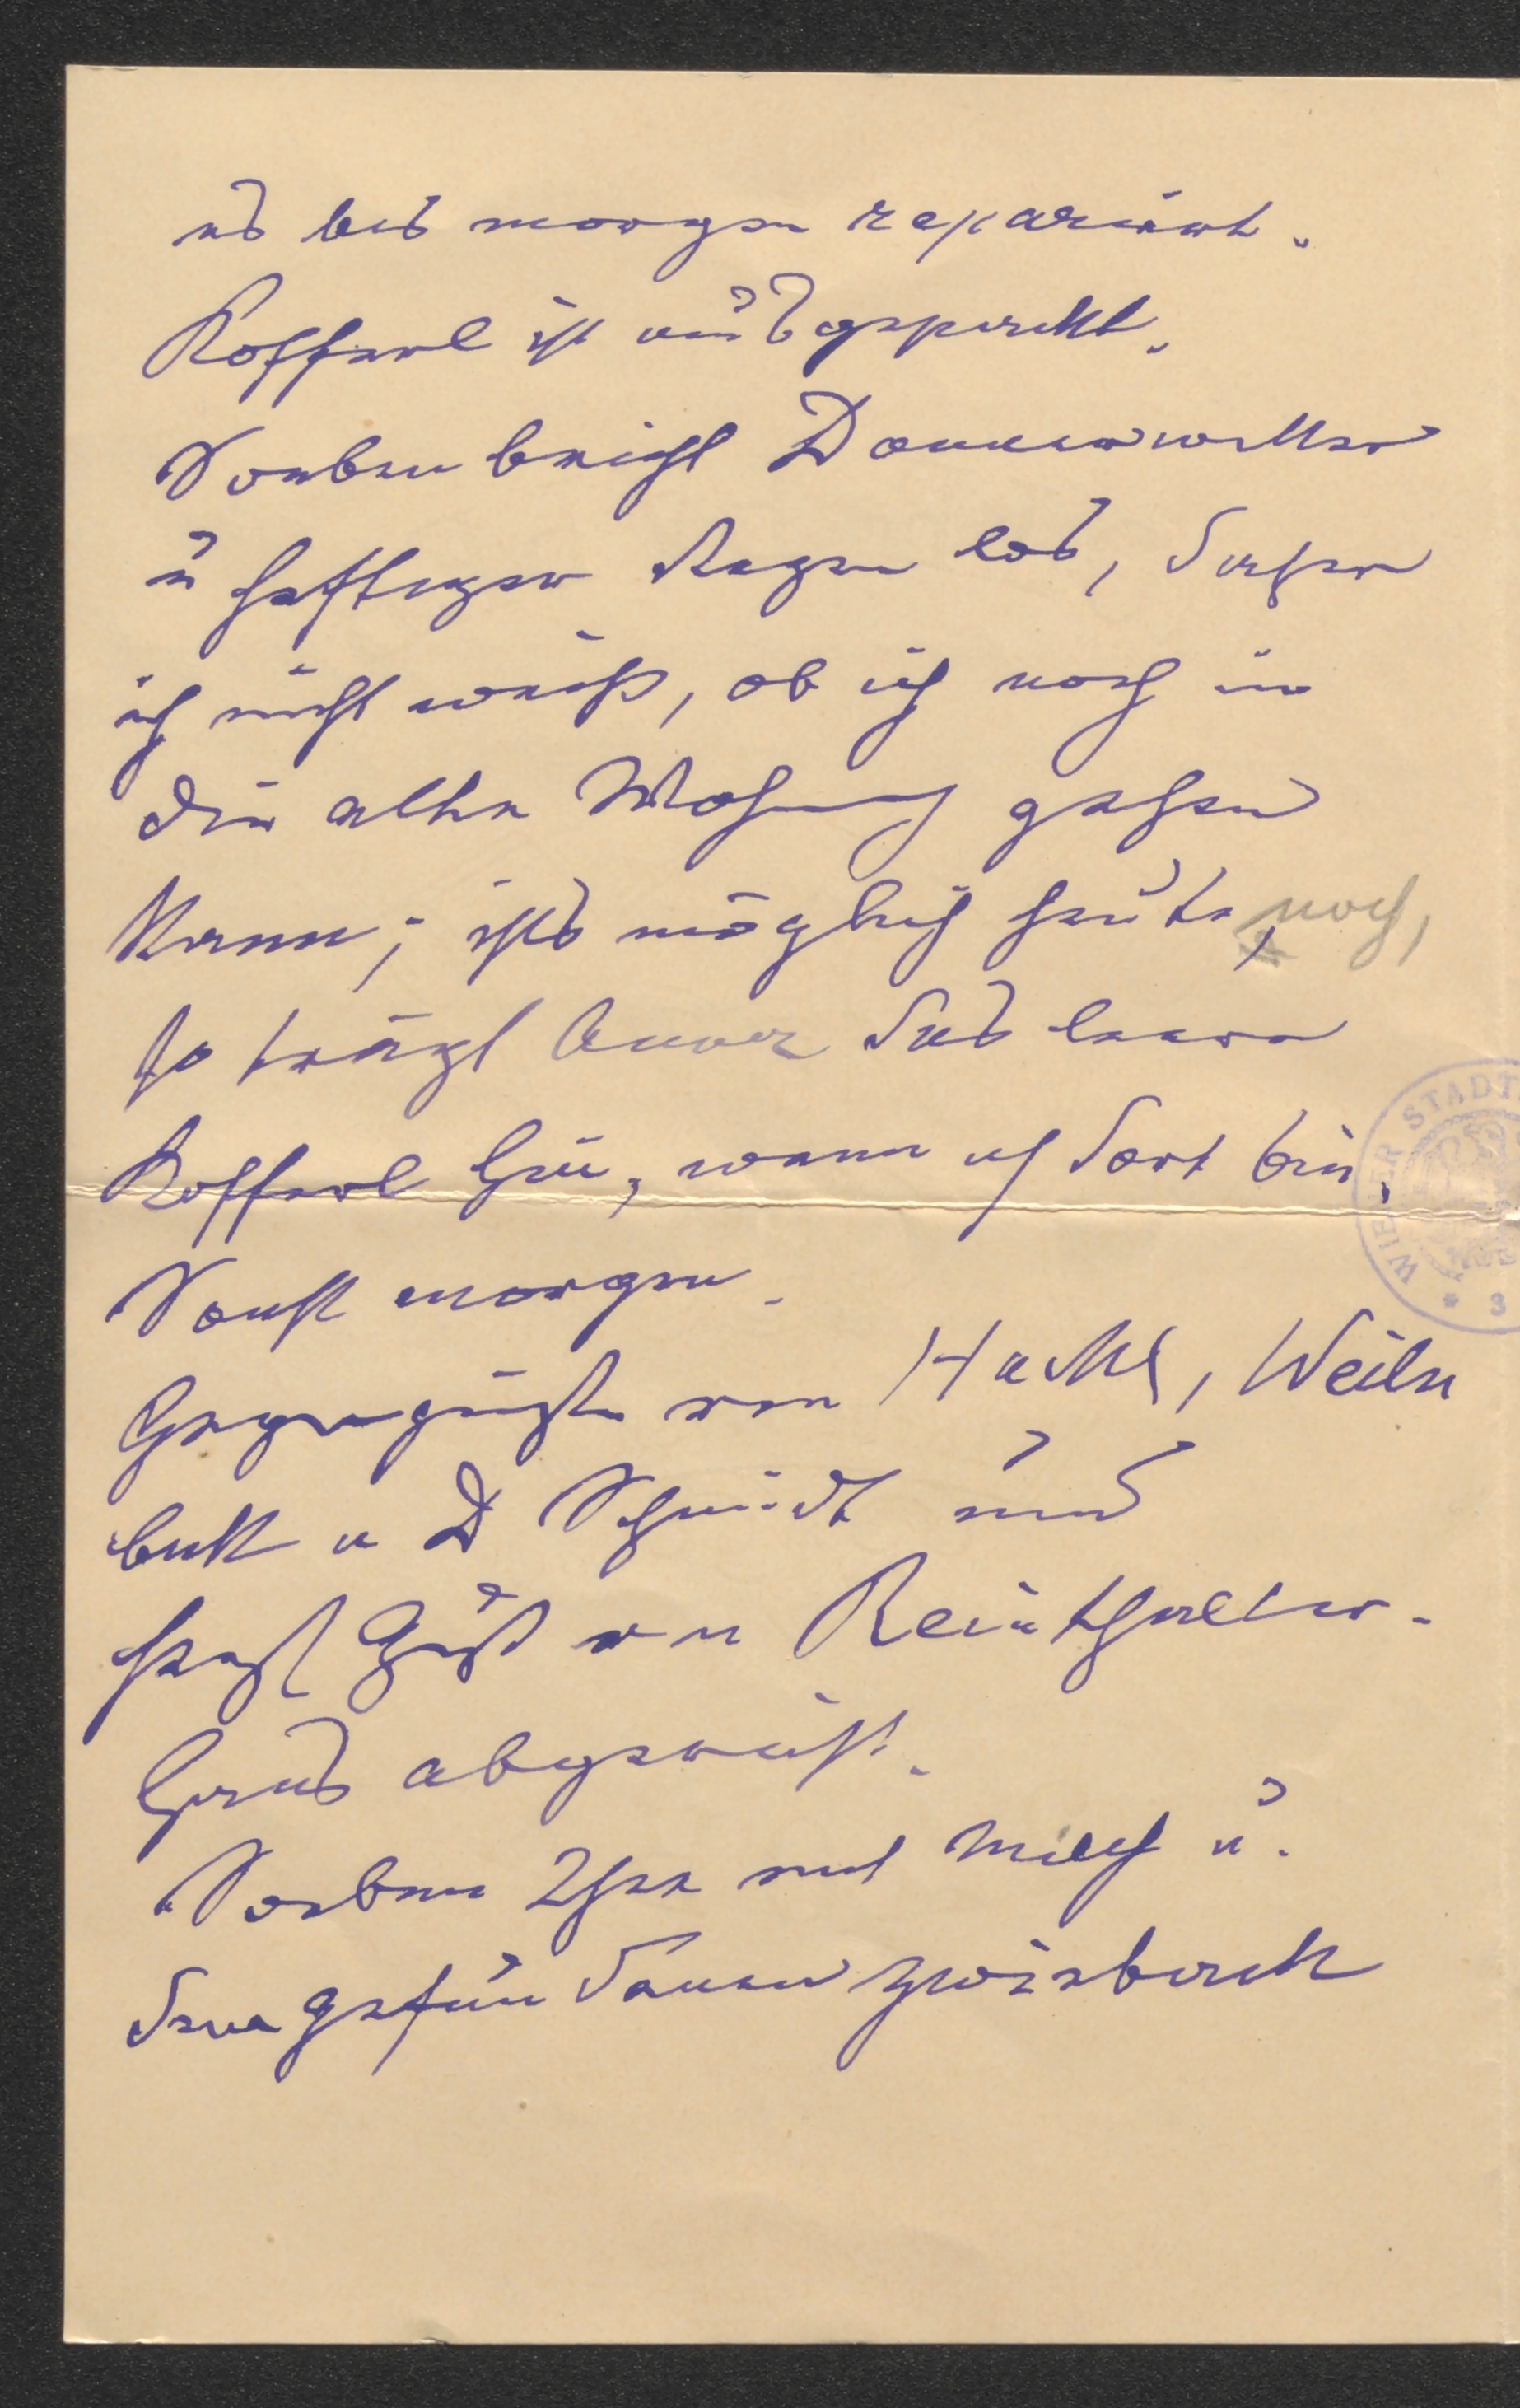 es bis morgen reparirt.
Kofferl ist ausgepackt.
Soeben bricht Donnerwetter
u heftiger Regen los, daher
ich nicht weiß, ob ich noch in
die alte Wohnung gehen
kann; ists möglich heute, noch,
so trägt Anna das leere
Kofferl hin, wenn ich dort bin.
Sonst morgen.
Gegengrüße von Hackl, Weiln
beck u D Schmidt und
Handschriftlich Gruß von Reinthaller.
Hans abgereist.
Soeben Thee mit Milch u.
darauf Zwieback
WIENER STADT